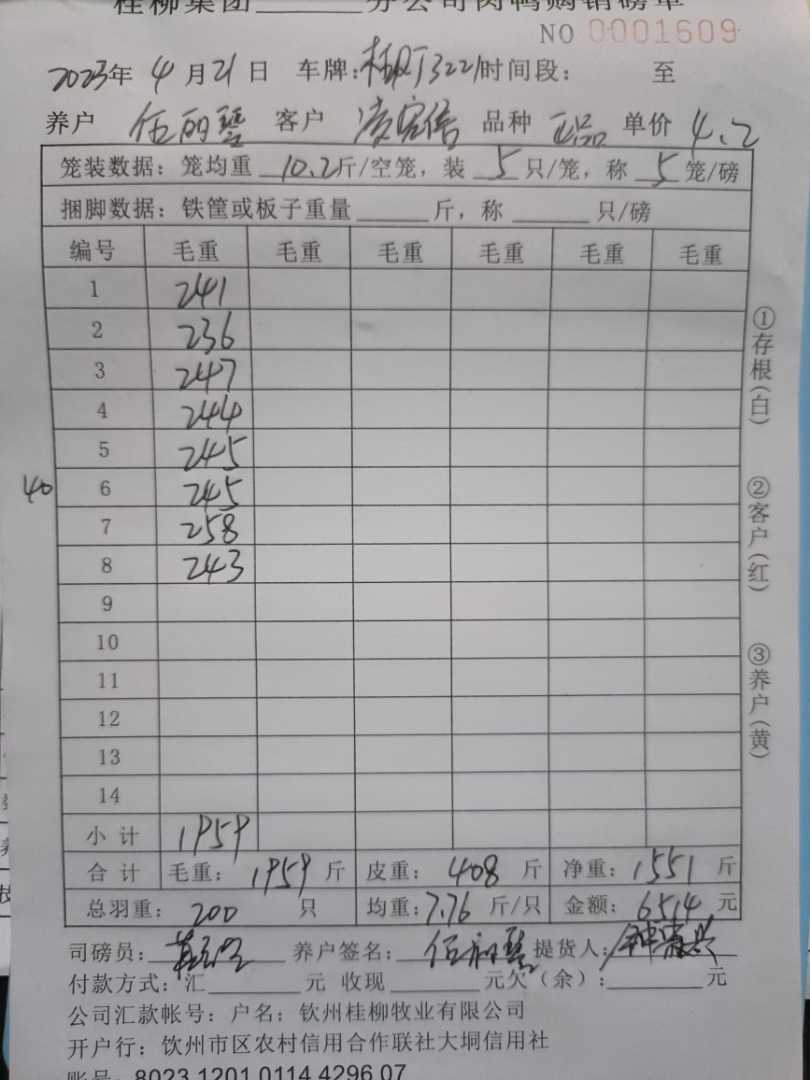 桂柳集团______分公司肉鸭购销磅单
NO 0001609
2023年 4月21日 车牌: 时间段: 至
养户 伍丽琴 客户 品种 正品 单价 4.2
笼装数据: 笼均重 10.2斤/空笼, 装 5 只/笼, 称 5 笼/磅
捆脚数据: 铁筐或板子重量______斤, 称______只/磅
编号 毛重 毛重 毛重 毛重 毛重 毛重
1 241
2 236
3 247
4 244
5 245
40 6 245
7 258
8 243
9
10
11
12
13
14
小计 1959
合计 毛重: 1959 斤 皮重: 408 斤 净重: 1551 斤
总羽重: 200 只 均重: 7.76 斤/只 金额: 6514 元
司磅员: 养户签名: 伍丽琴 提货人:
付款方式: 汇______元 收现______元欠(余):______元
公司汇款帐号: 户名: 钦州桂柳牧业有限公司
开户行: 钦州市区农村信用合作联社大垌信用社
账号: 8023 1201 0114 4296 07
①存根(白)
②客户(红)
③养户(黄)